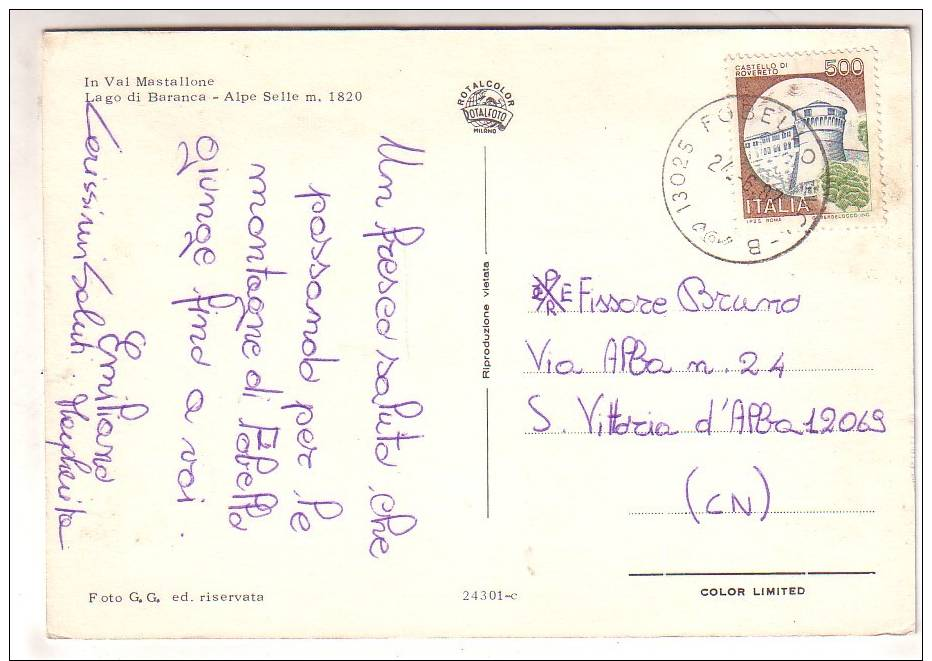 In Val Mastallone
Lago di Baranca - Alpe Selle m. 1820
ROTALCOLOR
ROTALFOTO
MILANO
CASTELLO DI
ROVERETO
500
ITALIA
I.P.Z.S. ROMA
13025 FOBELLO
Un fresco saluto che
passando per le
montagne di Fobello
giunge fino a voi.
Emiliano
Carissimi Saluti. Margherita
Riproduzione vietata
Fissore Bruno
Via Alba n. 24
S. Vittoria d'Alba 12069
(CN)
Foto G.G. ed. riservata
24301-c
COLOR LIMITED